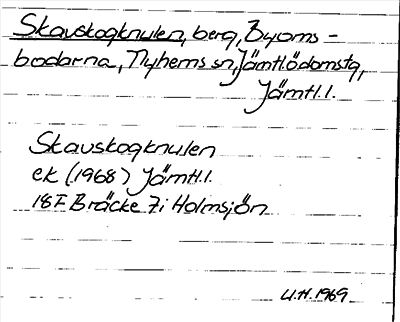 Skavskogknulen, berg, Byoms-
bodarna, Nyhems sn, Jämtl.ödomstg,
Jämtl.l.
Skavskogknulen
ek (1968) Jämtl.l.
18F Bräcke 7i Holmsjön
U.H. 1969